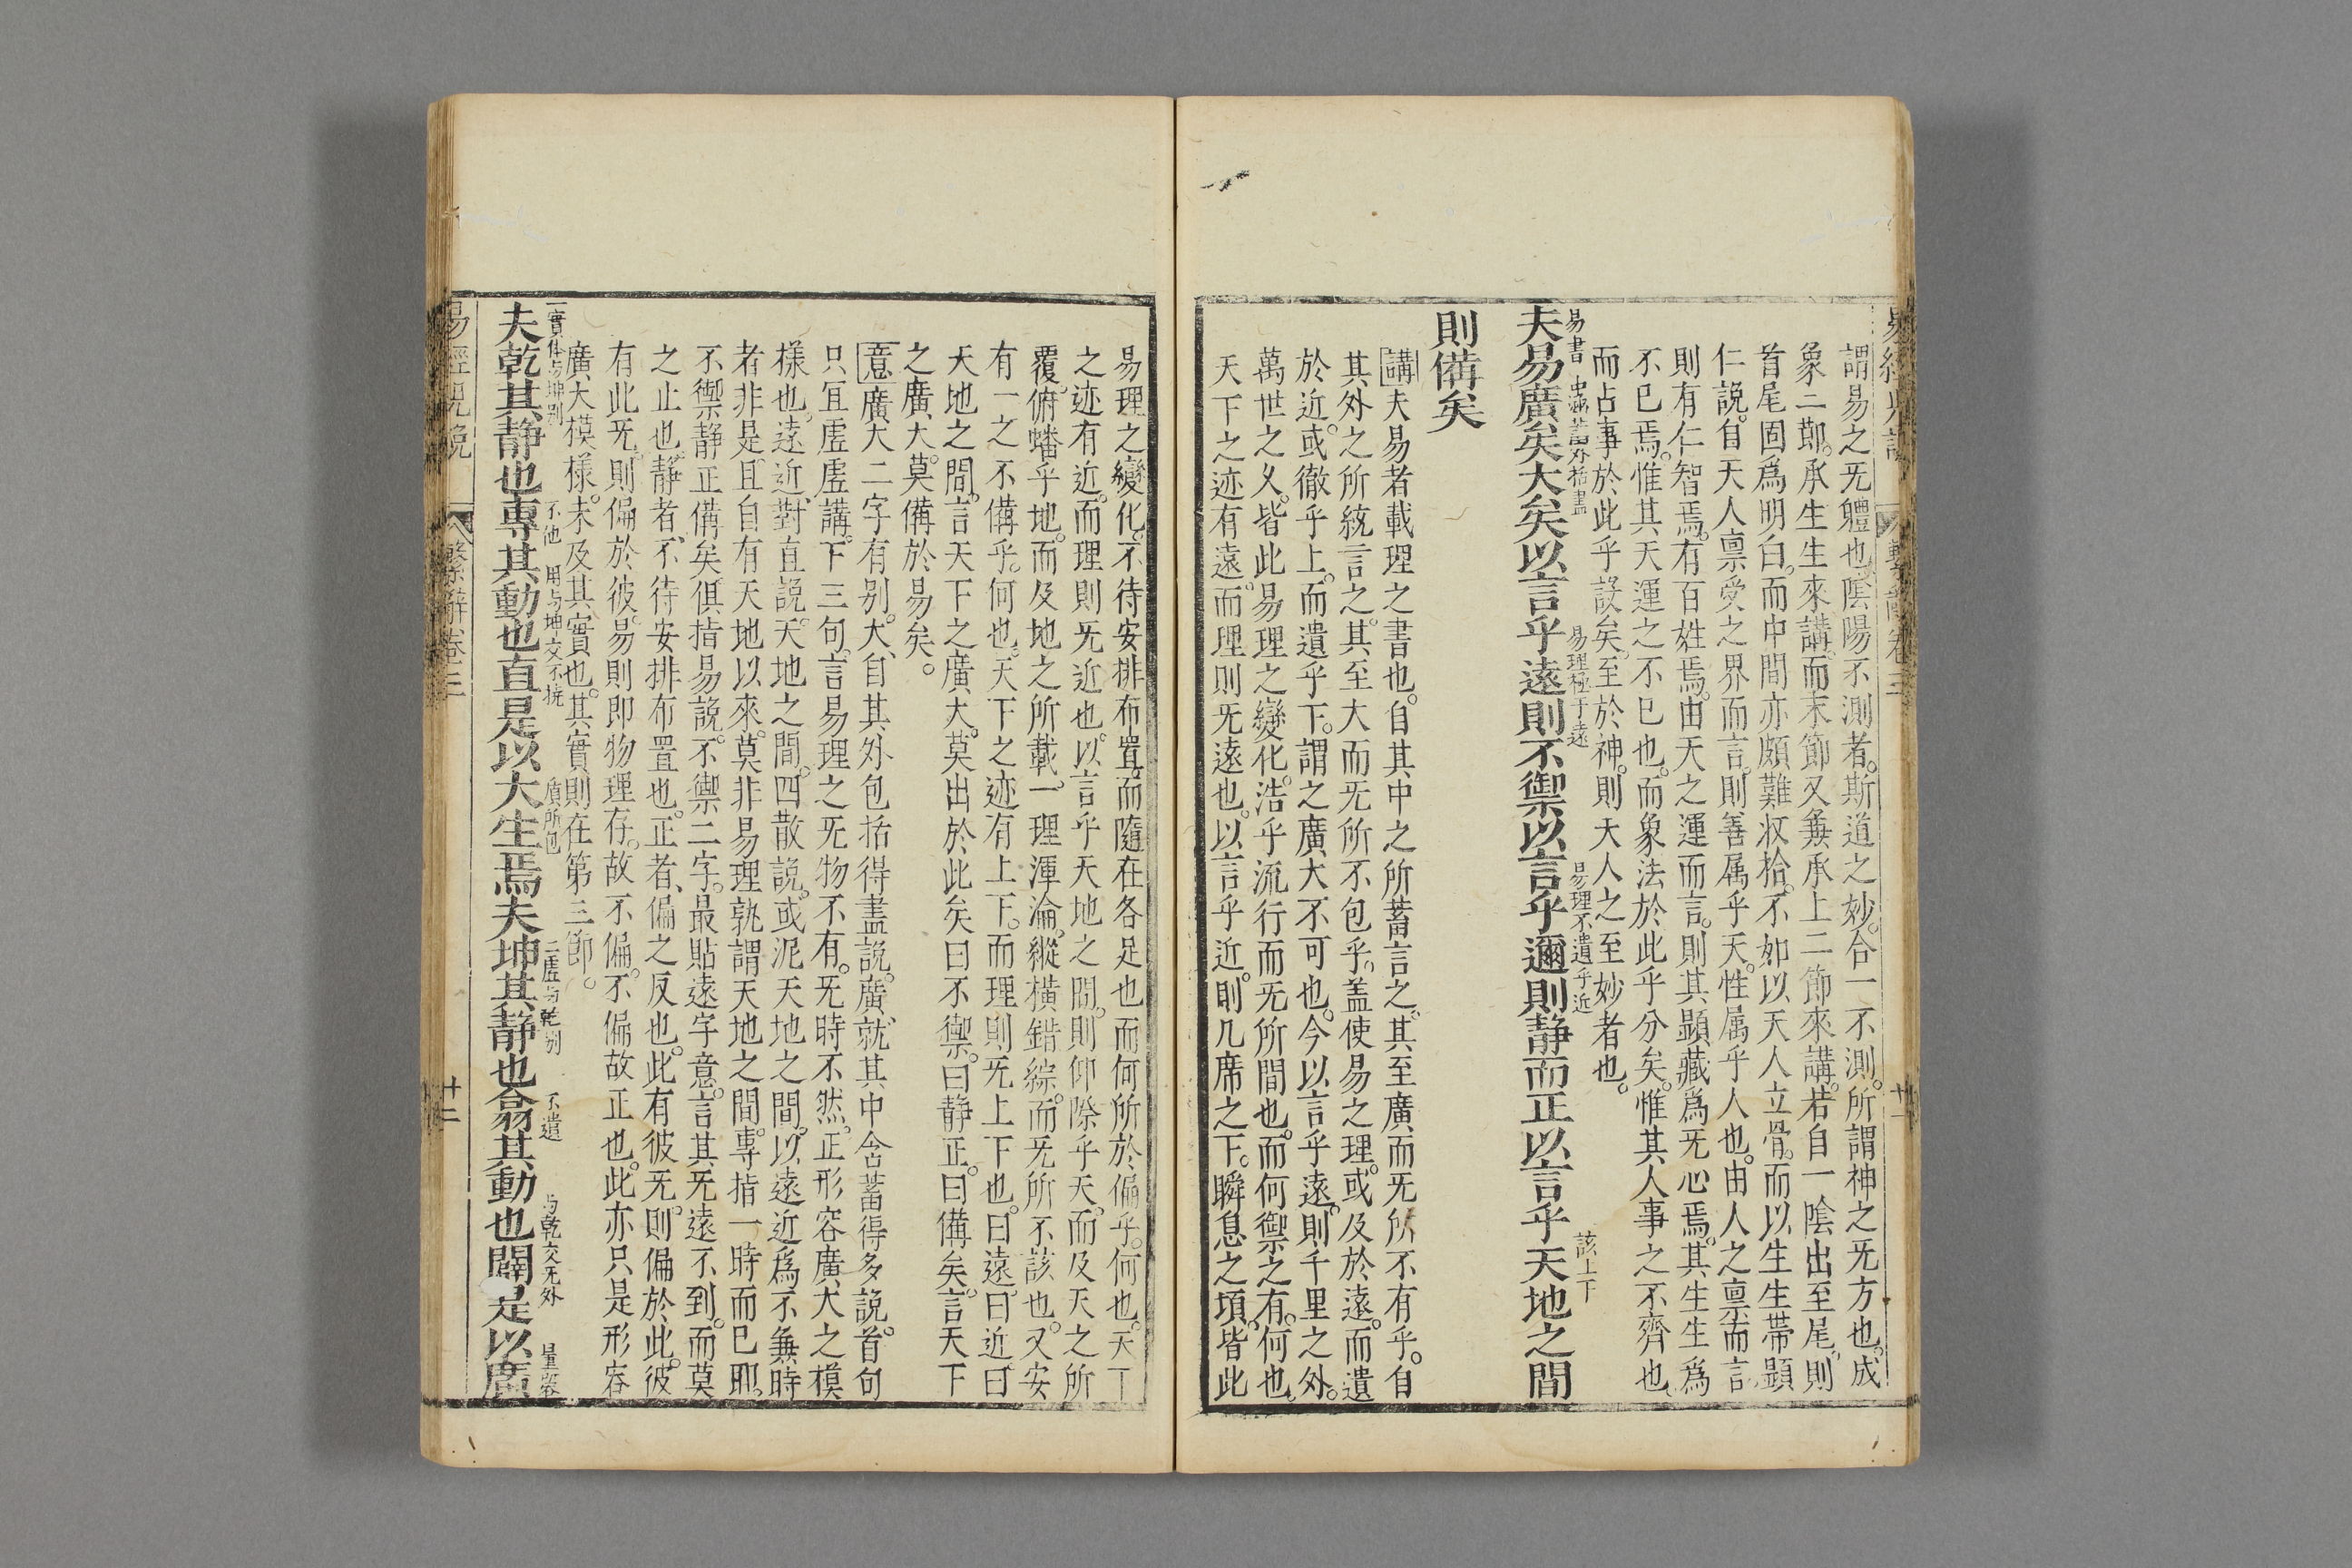 謂易之无體也。陰陽不測者。斯道之妙。合一不測。所謂神之无方也。成
象二節。承生生來講。而末節又兼承上二節來講。若自一陰出至尾。則
首尾固爲明白。而中間亦頗難收拾。不如以天人立骨。而以生生帶顯
仁說。自天人禀受之界而言。則善属乎天。性属乎人也。由人之禀而言
則有仁智焉。有百姓焉。由天之運而言。則其顯藏爲无心焉。其生生爲
不已焉。惟其天運之不已也。而象法於此乎分矣。惟其人事之不齊也
而占事於此乎設矣。至於神。則大人之至妙者也。
易書 中涵蓄外括盡 易理極于遠 易理不遺乎近 該上下
夫易廣矣大矣以言乎遠則不禦以言乎邇則静而正以言乎天地之間
則備矣
講夫易者載理之書也。自其中之所蓄言之。其至廣而无所不有乎。自
其外之所統言之。其至大而无所不包乎。盖使易之理。或及於遠。而遺
於近。或徹乎上。而遺乎下。謂之廣大不可也。今以言乎遠。則千里之外。
萬世之乆。皆此易理之變化。浩乎流行而无所間也。而何禦之有。何也
天下之迹有遠。而理則无遠也。以言乎近。則几席之下。瞬息之頃。皆此
易理之變化。不待安排布置。而隨在各足也而何所於偏乎。何也。天下
之迹有近。而理則无近也。以言乎天地之間。則仰際乎天。而及天之所
覆。俯蟠乎地。而及地之所載。一理渾淪。縱橫錯綜。而无所不該也。又安
有一之不備乎。何也。天下之迹有上下。而理則无上下也。曰遠。曰近。曰
天地之間。言天下之廣大。莫出於此矣曰不禦。曰静正。曰備矣。言天下
之廣大。莫備於易矣。
意廣大二字有别。大自其外包括得盡說。廣就其中含蓄得多說。首句
只宜虛虛講。下三句。言易理之无物不有。无時不然。正形容廣大之模
樣也。遠近對直說。天地之間。四散說。或泥天地之間。以遠近爲不兼時
者非是。且自有天地以來。莫非易理孰謂天地之間。專指一時而已耶。
不禦静正備矣。俱指易說。不禦二字。最貼遠字意。言其无遠不到。而莫
之止也。静者、不待安排布置也。正者、偏之反也。此有彼无。則偏於此。彼
有此无。則偏於彼。易則即物理存。故不偏。不偏故正也。此亦只是形容
廣大模樣。未及其實也。其實則在第三節。
一實体与坤别 不他 用与坤交不撓 質所包 二虛与乾别 不遺 与乾交无外 量容
夫乾其静也專其動也直是以大生焉夫坤其静也翕其動也闢是以廣
繫辭卷三 十二